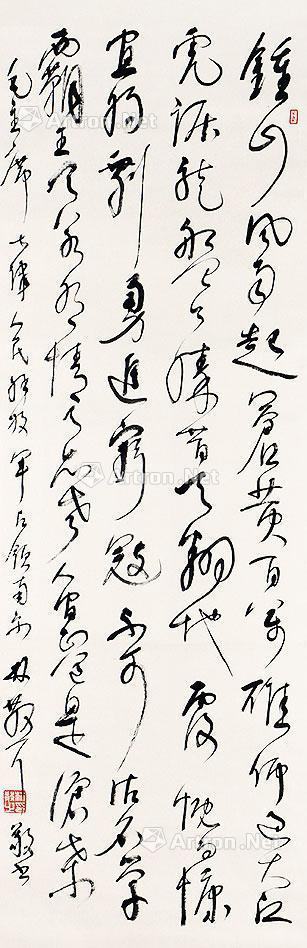 鍾山風雨起蒼黃百萬雄師過大江
虎踞龍盤今勝昔天翻地覆慨而慷
宜將剩勇追窮寇不可沽名學
霸王天若有情天亦老人間正道是滄桑
毛主席七律人民解放軍占領南京 林散耳 敬书
Artron.Net